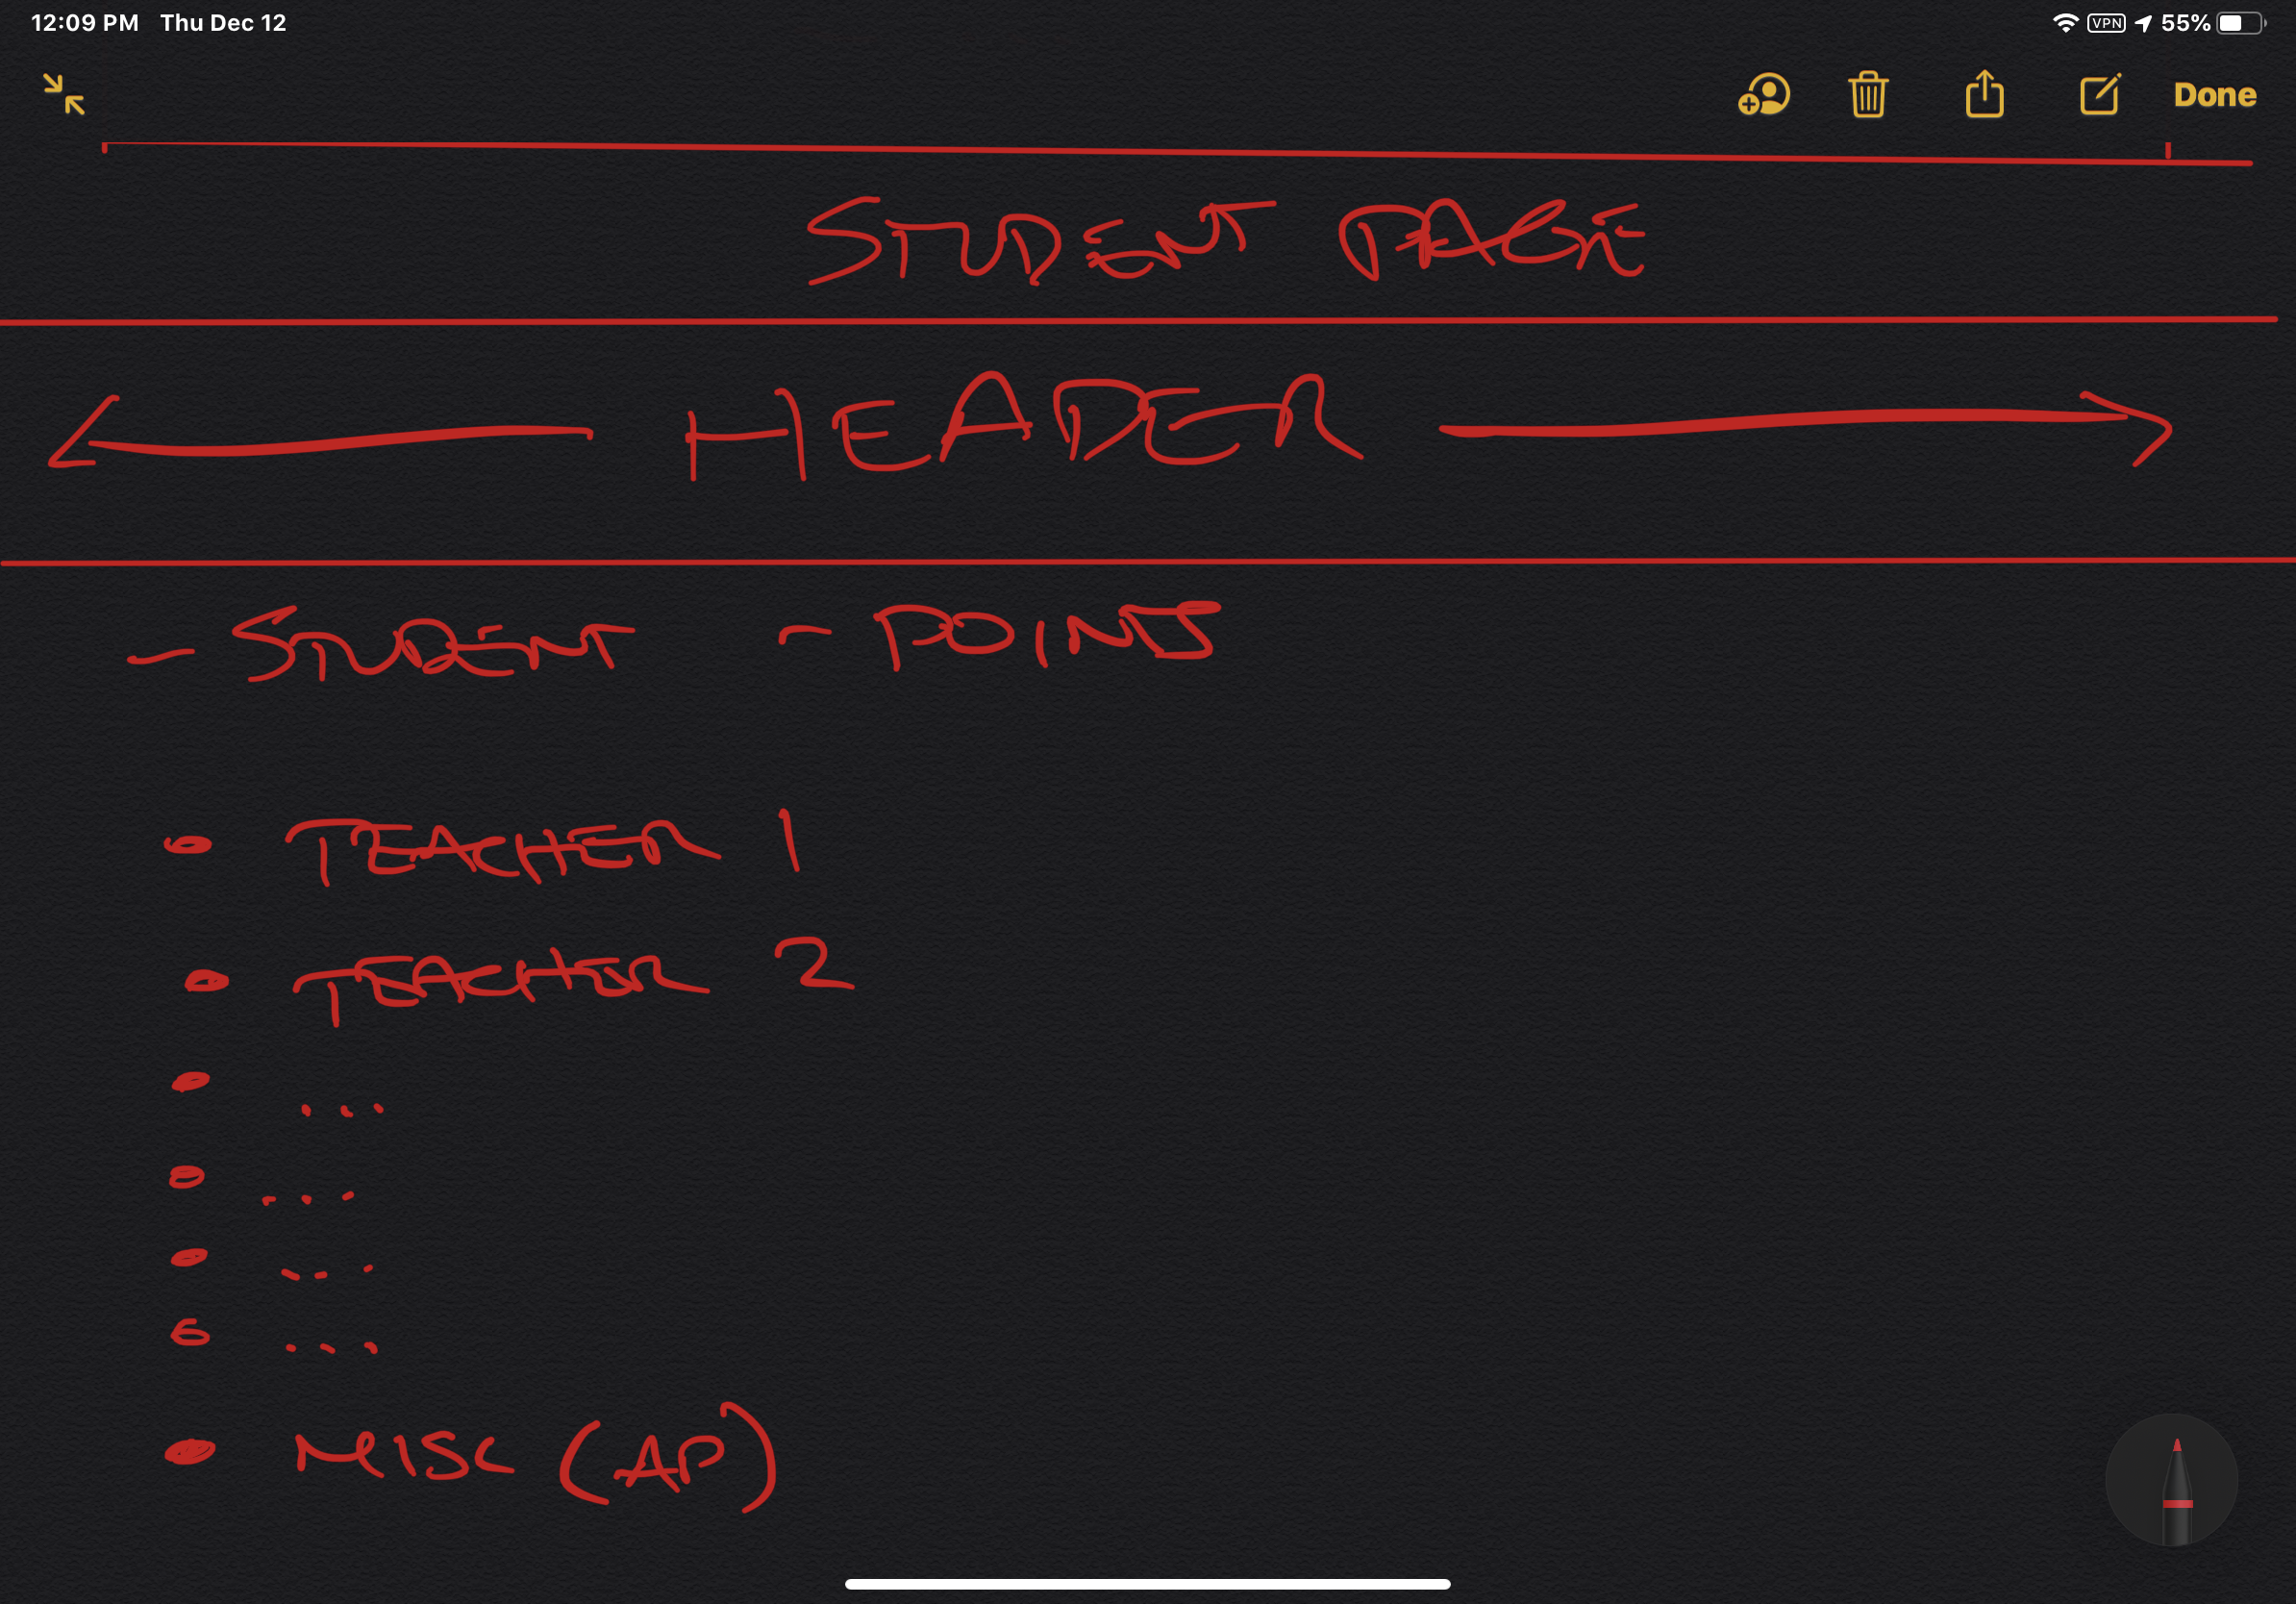 12:09 PM Thu Dec 12 VPN 55%
Done
STUDENT PAGE
HEADER
- STUDENT - POINTS
• TEACHER 1
• TEACHER 2
• ...
• ...
• ...
• ...
• MISC (AP)